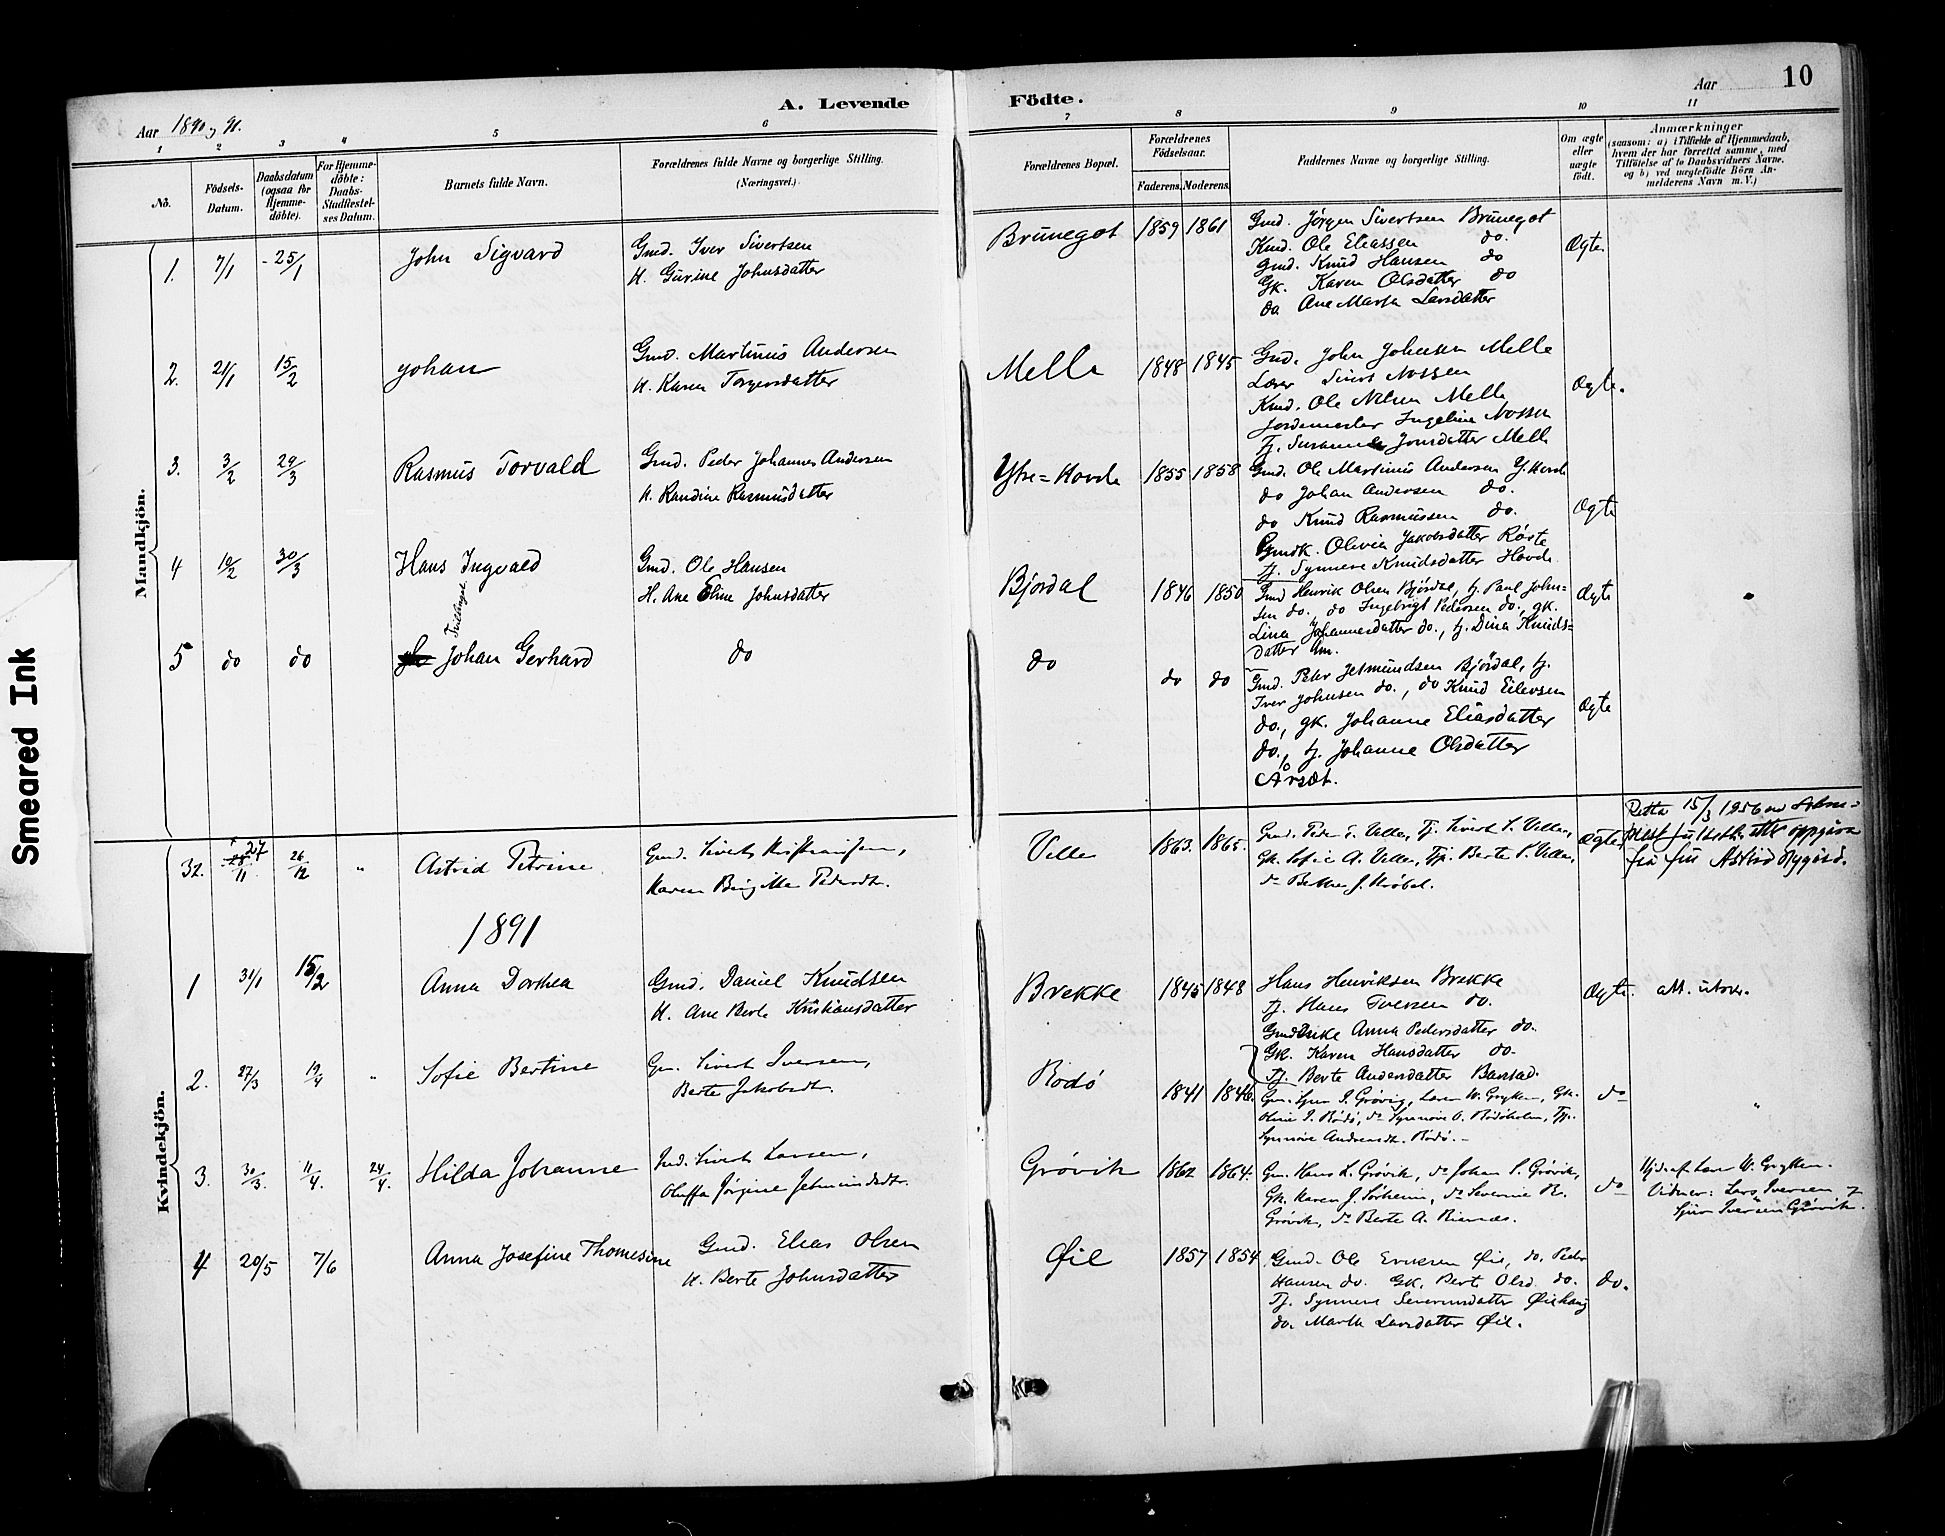 Smeared Ink
A. Levende Födte.
Aar 1890 og 91.
Aar 10
1 2 3 4 5 6 7 8 9 10 11
No.
Födsels-Datum.
Daabsdatum (ogsaa for Hjemme-döbte).
For Hjemme-döbte: Daabs-Stadfæstel-ses Datum.
Barnets fulde Navn.
Forældrenes fulde Navne og borgerlige Stilling.
(Næringsvei.)
Forældrenes Bopæl.
Forældrenes Födselsaar.
Faderens. Moderens.
Faddernes Navne og borgerlige Stilling.
Om ægte eller uægte födt.
Anmærkninger
(saasom: a) i Tilfælde af Hjemmedaab,
hvem der har forrettet samme, med
Tilföielse af to Daabsvidners Navne.
og b) ved uægtefödte Börn An-
melderens Navn m. V.)
Mandkjön.
1. 7/1 25/1 John Sigvard
Gmd. Iver Sivertsen
H. Gurine Johnsdatter
Brunegot 1859 1861
Gmd. Jörgen Sivertsen Brunegot
Kmd. Ole Eliassen do.
Gmd. Knud Hansen do
Gk. Karen Olsdatter do
do. Ane Marta Larsdatter
Ægte.
2. 21/1 15/2 Johan
Gmd. Martinus Andersen
H. Karen Torgersdatter
Melle 1848 1845
Gmd. John Johnsen Melle
Lærer Sivert Nossen
Kmd. Ole Nilsen Melle
Jordemoder Ingeline Nossen
tj. Susanne Jonsdatter Melle
Ægte.
3. 3/2 29/3 Rasmus Torvald
Gmd. Peder Johannes Andersen
H. Randine Rasmusdatter
Ytre=Hovde 1855 1858
Gmd. Ole Martinus Andersen Y. Hovde
do Johan Andersen do.
do Knud Rasmussen do.
Gmdk. Olivia Jakobsdatter Röste
tj. Synneve Knudsdatter Hovde
Ægte
4 10/2 30/3 Hans Ingvald
Gmd. Ole Hansen
H. Ane Eline Johnsdatter
Bjørdal 1846 1850
Gmd Henrik Olsen Bjørdal, tj. Paul John-
sen do., do Ingebrigt Pedersen do., gk.
Lina Johannesdatter do., tj. Dina Knuds=
datter Am.
Ægte
Tvillinger
5 do do Johan Gerhard
do
do do do
Gmd. Peter Jetmundsen Bjørdal, tj.
Iver Johnsen do., do Knud Eilevsen
do., gk. Johanne Eliasdatter
do., tj. Johanne Olsdatter
Årset.
Ægte
Kvindekjön.
32. 27/11 26/12 " Astrid Petrine.
Gmd. Sivert Kristiansen,
Karen Birgitte Pedersdt.
Velle 1863. 1865.
Gmd. Peder S. Velle, Tj. Sivert S. Velle,
Gk. Sofie A. Velle, Tj. Berte P. Velle,
do Bethe J. Krøbel.
Ægte
Retta 15/3 1956
etter oppgåva
frå fru Astrid Nygård.
1891
1 31/1 15/2 Anna Dorthea
Gmd. Daniel Knudsen
H. Ane Berte Kristiansdatter
Brekke 1845 1848
Hans Henriksen Brekke
tj. Hans Iversen do.
Gmd Enke Anna Pedersdatter do.
Gk. Karen Hansdatter do.
Tj. Berte Andersdatter Banstad.
Ægte. att. utover.
2. 27/3 19/4 " Sofie Bertine
Gm. Sivert Iversen,
Berte Jakobsdt.
Rødø 1841 1846.
Gm. Sjur I. Grøvig, Lærer W. Gryten, Gk.
Oline I. Rødø, do Synnøve O. Rødøholm, Tj.
Synnøve Andreasdt. Rødø.
do "
3. 30/3. 11/4. 24/4. Hilda Johanne
Gmd. Sivert Larsen,
Oluffa Jørgine Jetmundsdt.
Grøvik 1862 1864.
Gm. Hans L. Grøvik, do Johan P. Grøvik,
Gk. Karen J. Sørheim, do Severine R.
Grøvik, do Berte A. Risnæs.
do
Hjdr. af Lærer W. Gryten.
Vidner: Lars Iversen og
Sjur Iversen Grøvik.
4 20/5 7/6 Anna Josefine Thomesine
Gmd. Elias Olsen
H. Berte Johnsdatter
Øie 1857 1854
Gmd. Ole Eriksen Øie, do. Peder
Hansen do. Gk. Berte Olsd. do.
Tj. Synneve Severinsdatter Øiehaug
do. Marthe Larsdatter Øie.
do.